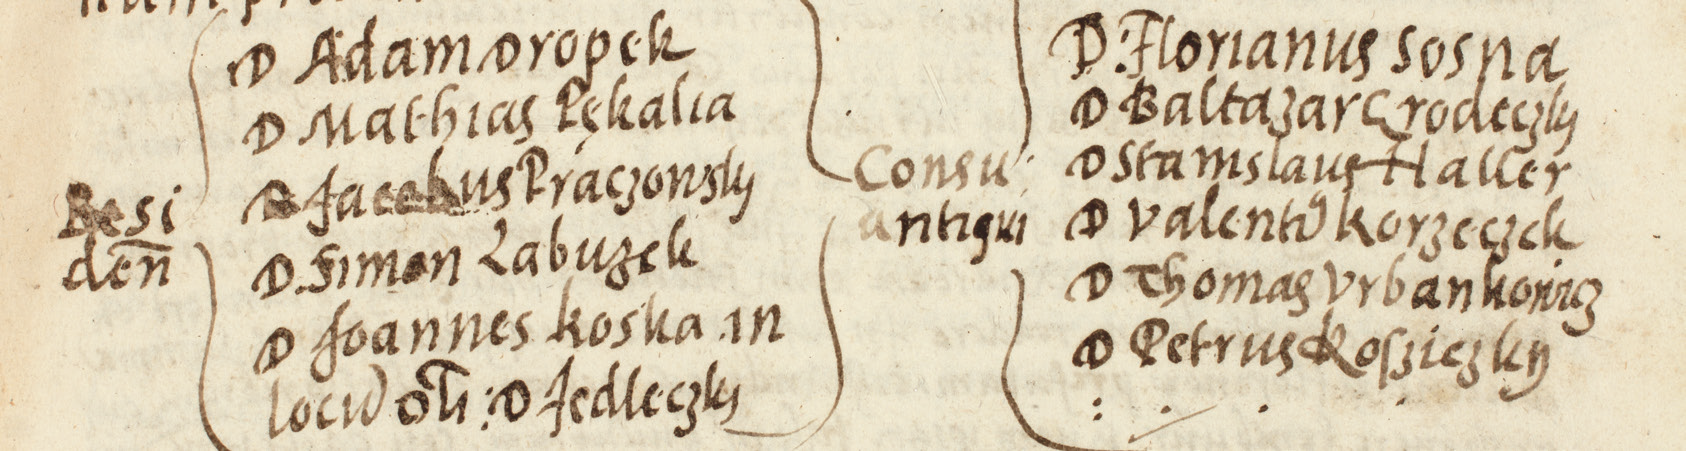 Resi
den̅
D Adam Dropek
D Mathias Pękalia
D Jacobus Prączowsky
D. Simon Labuzek
D Joannes Koska in
locu) oli: D Jedleczky
Consu:
antiqui
D. Florianus Sosna
D Baltazar Grodeczky
D Stanislaus Haller
D Valentu) Korzeczek
D Thomas Vrbankowicz
D Petrus Kosziczky